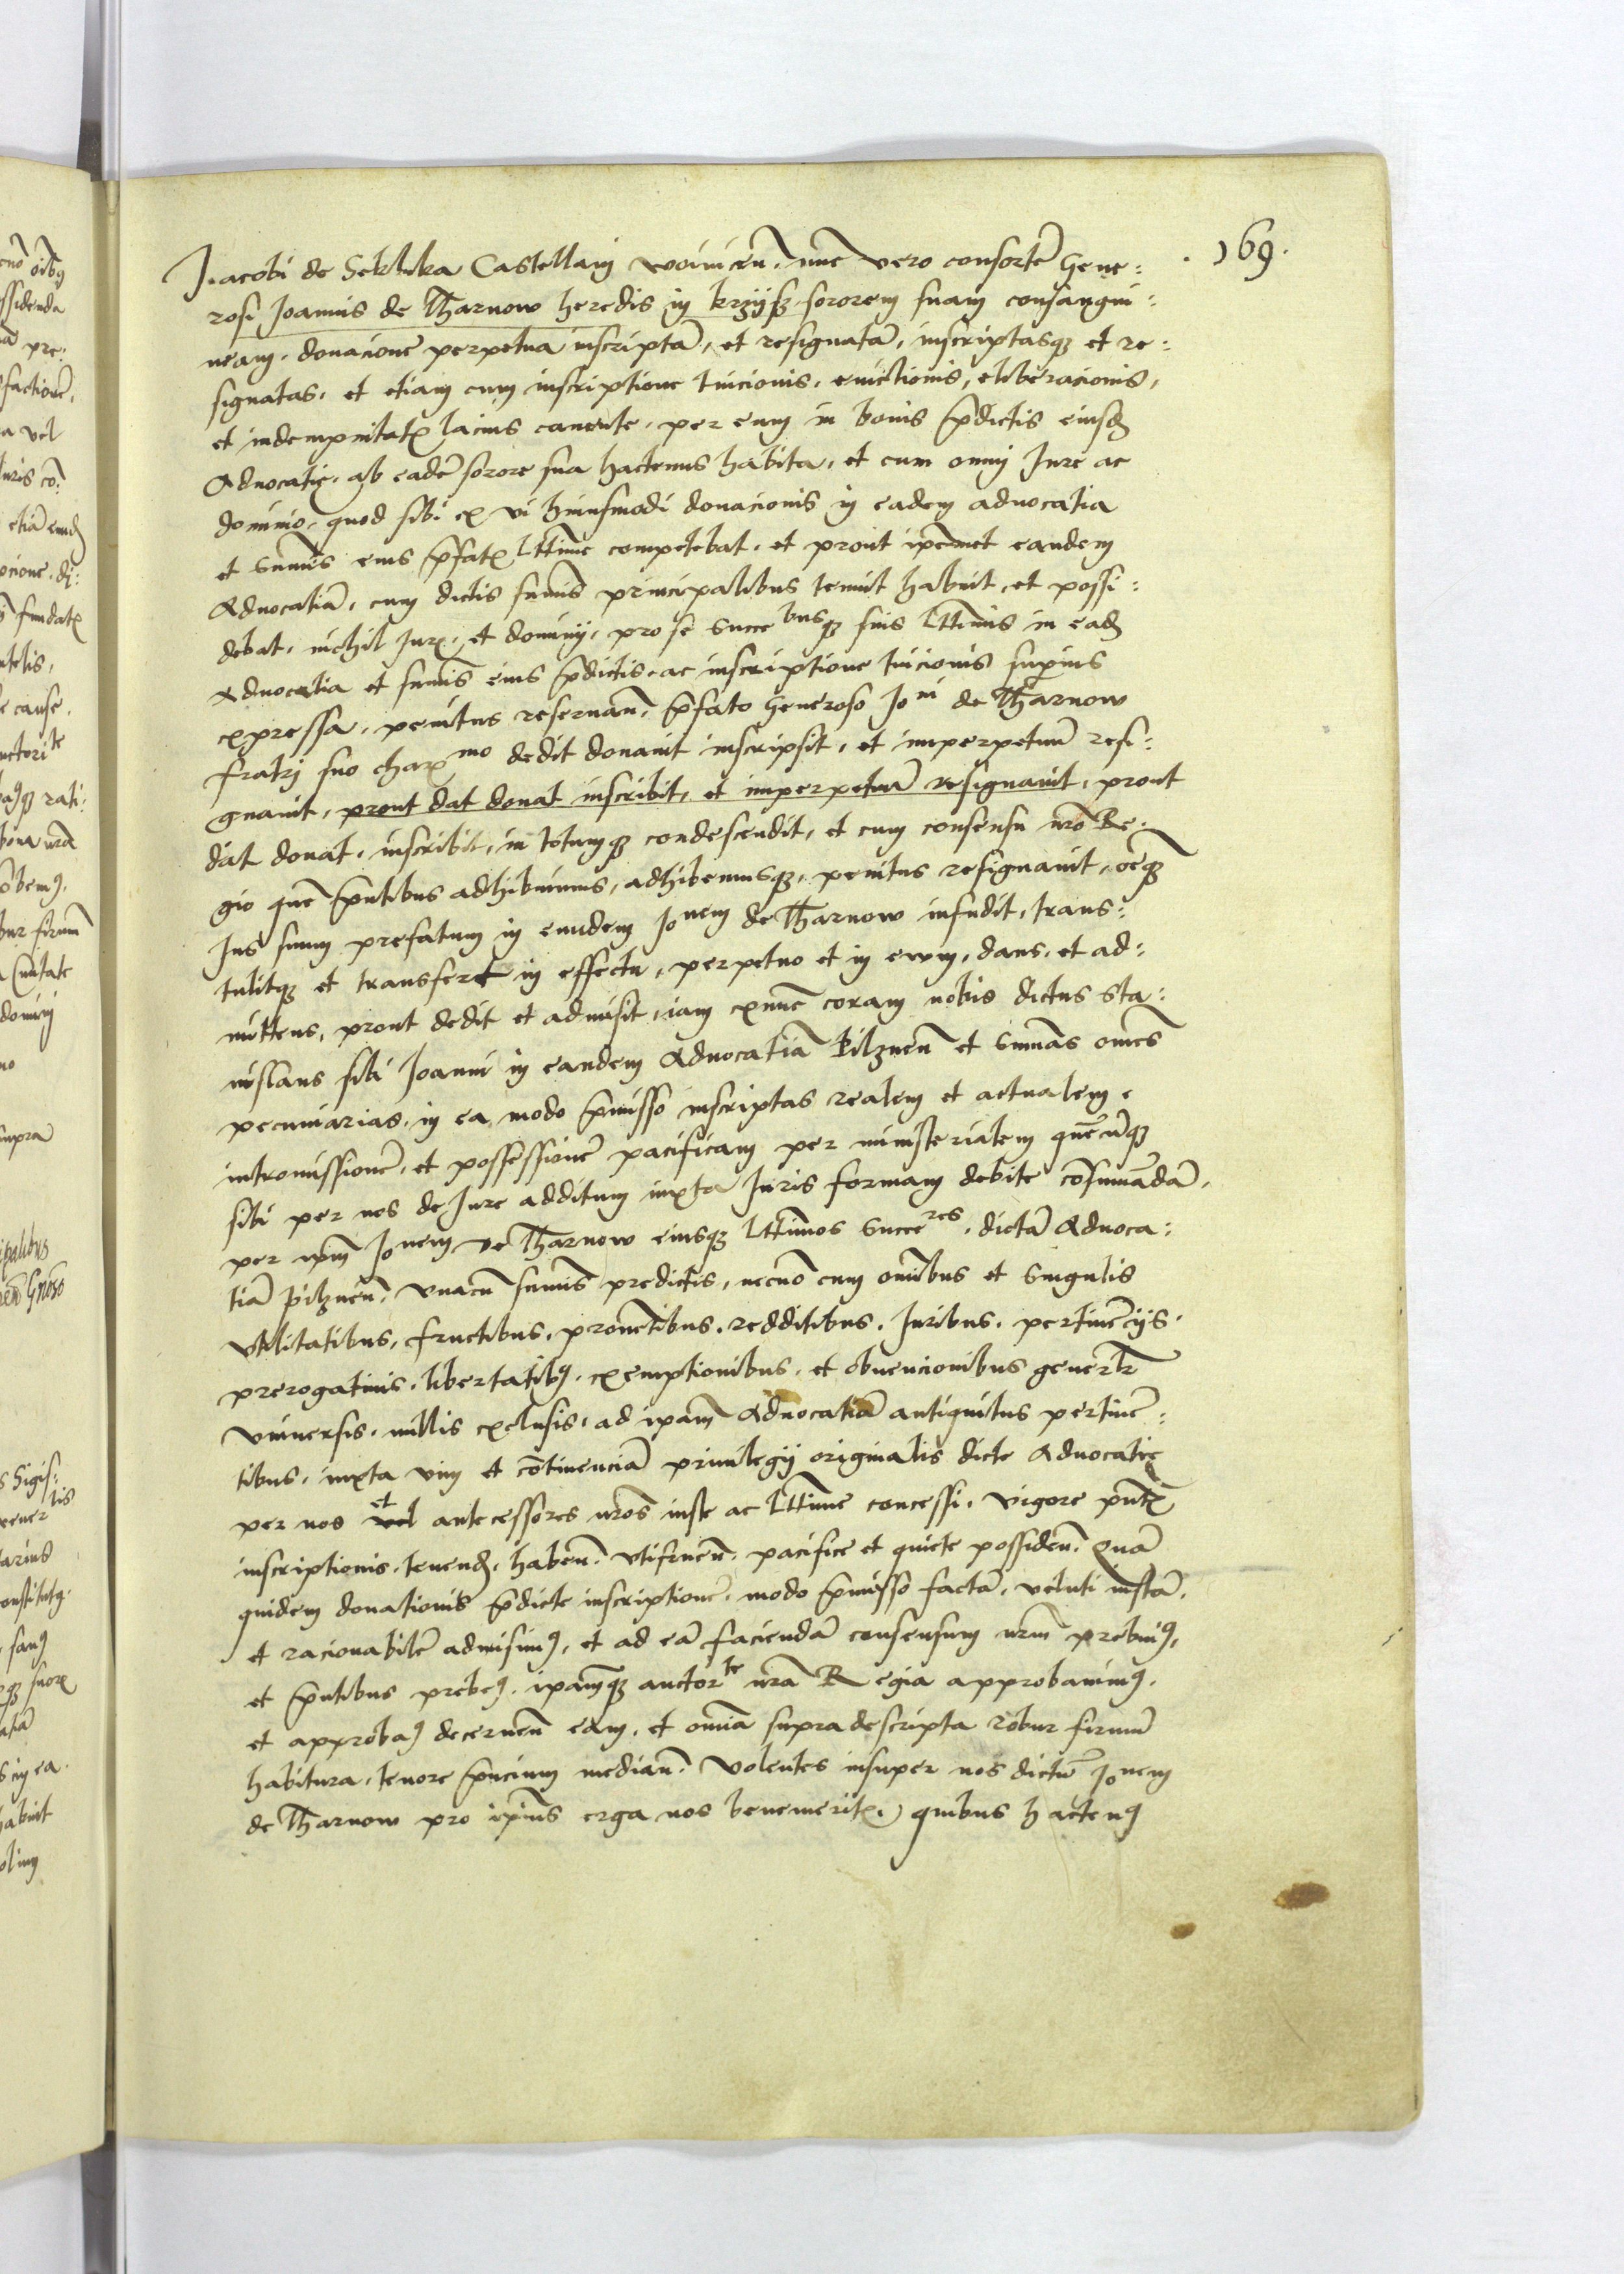 169.
Jacobi de Sekluka Castellani woinicen̄. nūc vero consortē Gene:
rosi Joannis de Tharnow heredis in krzijsz sororem suam consangui:
neam. donacione perpetua inscriptā, et resignatā, inscriptasqz et re:
signatas, et etiam cum inscriptione tuicionis, euictionis, eliberacionis,
et indempnitatꝭ lacius cauente, per eum in bonis p̄dictis eiusdꝫ
Aduocatie, ab eadē sorore sua hactenus habita, et cum omni Jure ac
dominio, quod sibi ex vi huiusmodi donacionis in eadem aduocatia
et Sum̄is eius p̄fatꝭ Lttīme competebat, et prout ipēmet eandem
Aduocatiā, cum dictis sum̄is principalibus tenuit habuit, et possi:
debat, nichil Jurꝭ, et dominij, pro se Succebusqz suis Lttīmis in eadꝫ
Aduocatia et sum̄is eius p̄dictis, ac inscriptione tuicionis superius
expressa, penitus reseruan̄. p̄fato Generoso Joni de Tharnow
fratri suo charꝭmo dedit donauit inscripsit, et imperpetuū resi:
gnauit, prout dat donat inscribit, et imperpetuū resignauit, prout
dat donat, inscribit, in totumqz condescendit, et cum consensu n̄ro Re:
gio quē p̄ntibus adhibuimus, adhibemusqz, penitus resignauit, oēqz
Jus suum prefatum in eundem Jonem de Tharnow infudit, trans:
tulitqz et transfert in effectu, perpetuo et in ewm, dans, et ad:
mittens, prout dedit et admisit, iam exnūc coram nobis dictus Sta:
nislaus sibi Joanni in eandem Aduocatiā Pilznen̄ et Summās omēs
pecuniarias, in ea modo p̄misso inscriptas realem et actualem
intromissionē, et possessionē pacificam per ministerialem quēcūqz
sibi per nos de Jure additum iuxta Juris formam debite cōsumādā,
per ip̄m Jonem de Tharnow eiusqz Lttīmos Succeres. dictā Aduoca:
tiā Pilznen̄. vnacū sum̄is predictis, necnō cum om̄ibus et Singulis
vtilitatibus, fructibus, prouētibus, redditibus, Juribus, pertinēcijs.
prerogatiuis, libertatibꝰ, exemptionibus, et obuencionibus generlr̄
vniuersis, nullis exclusis, ad ip̄am Aduocatiā antiquitus pertinē:
tibus, iuxta vim et cōtinenciā priuilegij originalis dicte Aduocatie
per nos vel et antecessores n̄ros iuste ac Lttīme concessi, vigore p̄ntꝭ
inscriptionis, tenendꝫ, haben̄. vtifruen̄. pacifice et quiete possiden̄. Quā
quidem donationis p̄dicte inscriptionē, modo p̄misso factā, veluti iustā,
et racionabilē admisimꝰ, et ad eā faciendā consensum n̄rm prebuimꝰ,
et p̄ntibus prebemꝰ, ip̄amqz auctorte n̄ra Regia approbauimꝰ,
et approbamꝰ decernen̄ eam, et om̄ia supra descripta robur firmū
habitura, tenore p̄ncium median̄. Volentes insuper nos dictū Jonem
de Tharnow pro ip̄ius erga nos benemeritꝭ, quibus hactenꝰ